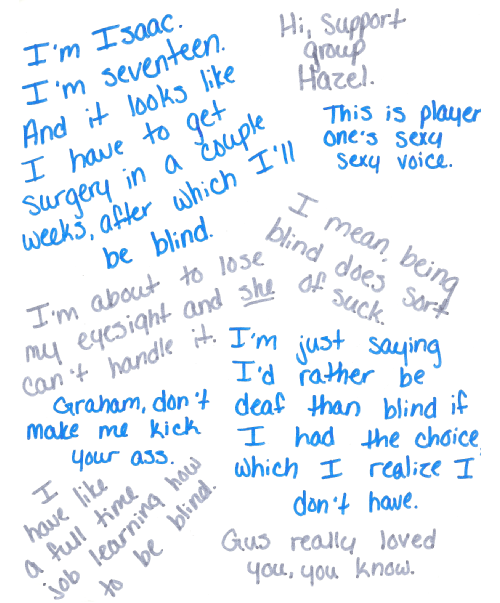 I'm Isaac.
I'm seventeen.
And it looks like
I have to get
surgery in a couple
weeks, after which I'll
be blind.
Hi, Support
group
Hazel.
This is player
one's sexy
sexy voice.
I mean, being
blind does sort
of suck.
I'm about to lose
my eyesight and she
can't handle it.
I'm just saying
I'd rather be
deaf than blind if
I had the choice,
which I realize I
don't have.
Graham, don't
make me kick
your ass.
I
have like
a full time
job learning how
to be blind.
Gus really loved
you, you know.